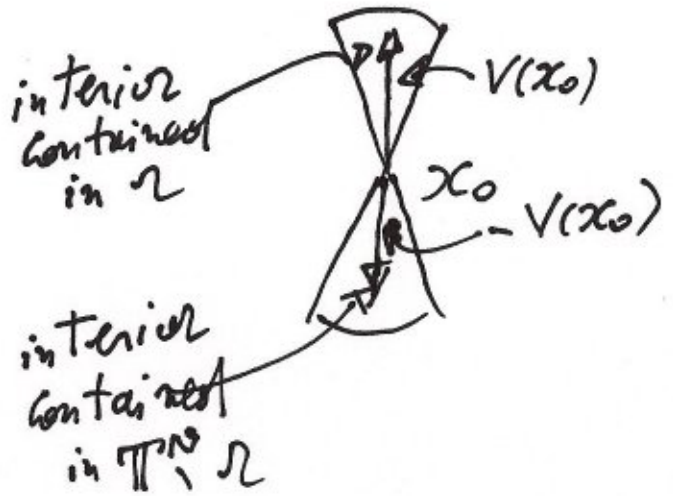 interior
contained
in Ω
V(x₀)
x₀
- V(x₀)
interior
contained
in 𝕋ᴺ \ Ω